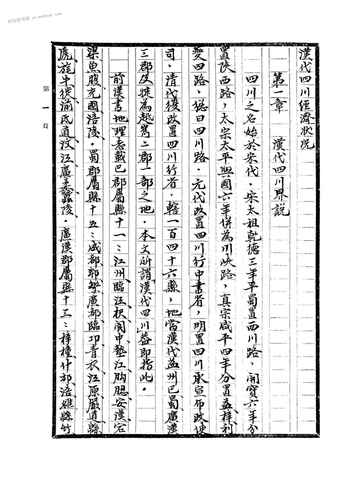 漢代四川經濟狀況
第一章 漢代四川界說
四川之名始於宋代，宋太祖乾德三年平蜀置西川路，開寶六年分
置陝西路，太宗太平興國六年併為川峽路，真宗咸平四年分置益梓利
夔四路，總曰四川路，元代改置四川行中書省，明置四川承宣布政使
司，清代復改置四川行省，轄一百四十六縣，地當漢代益州巴蜀廣漢
三郡及犍為越嶲二郡一部之地，本文所謂漢代四川蓋即指此。
前漢書地理志載巴郡屬縣十一：江州臨江枳閬中墊江朐忍安漢宕
渠魚腹充國涪陵。蜀郡屬縣十五：成都郫繁廣都臨邛青衣江原嚴道緜
虒旄牛徙湔氐道汶江廣柔蠶陵。廣漢郡屬縣十三：梓潼什邡涪雒緜竹
第一頁